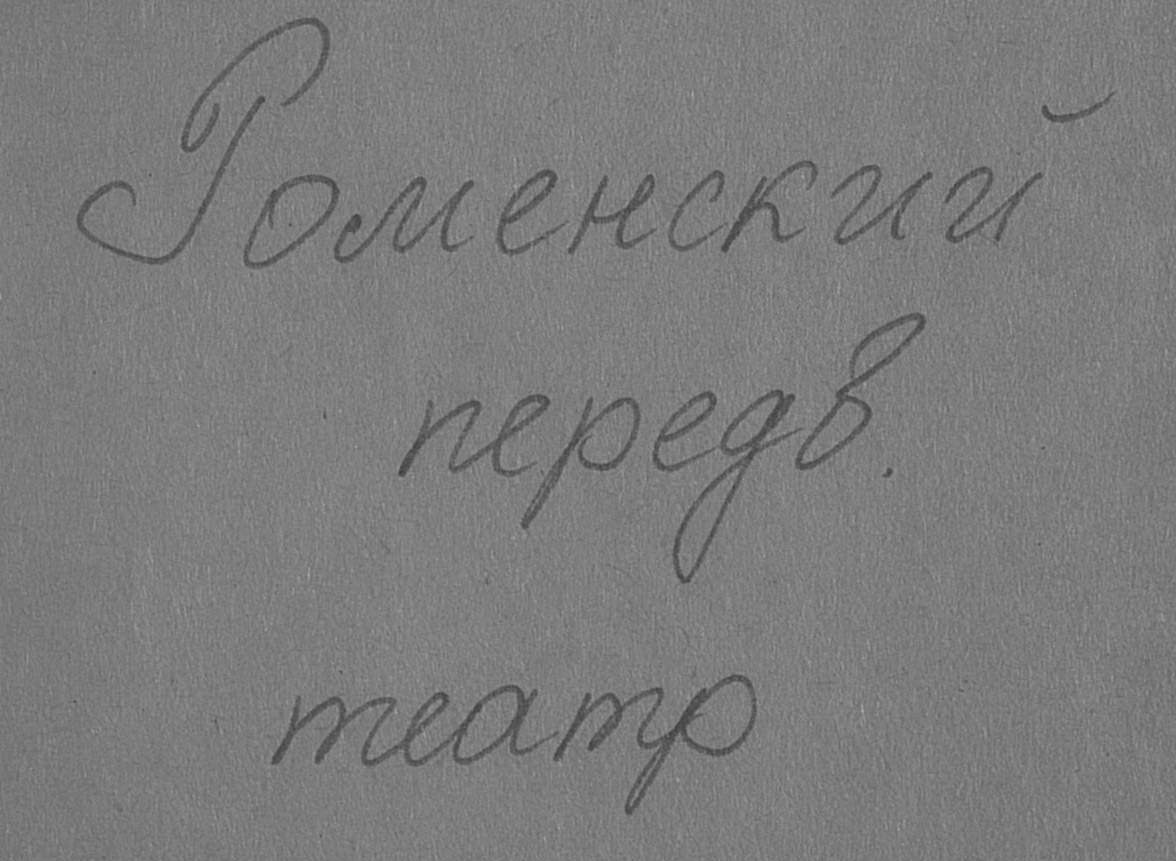 Роменский
передв.
театр